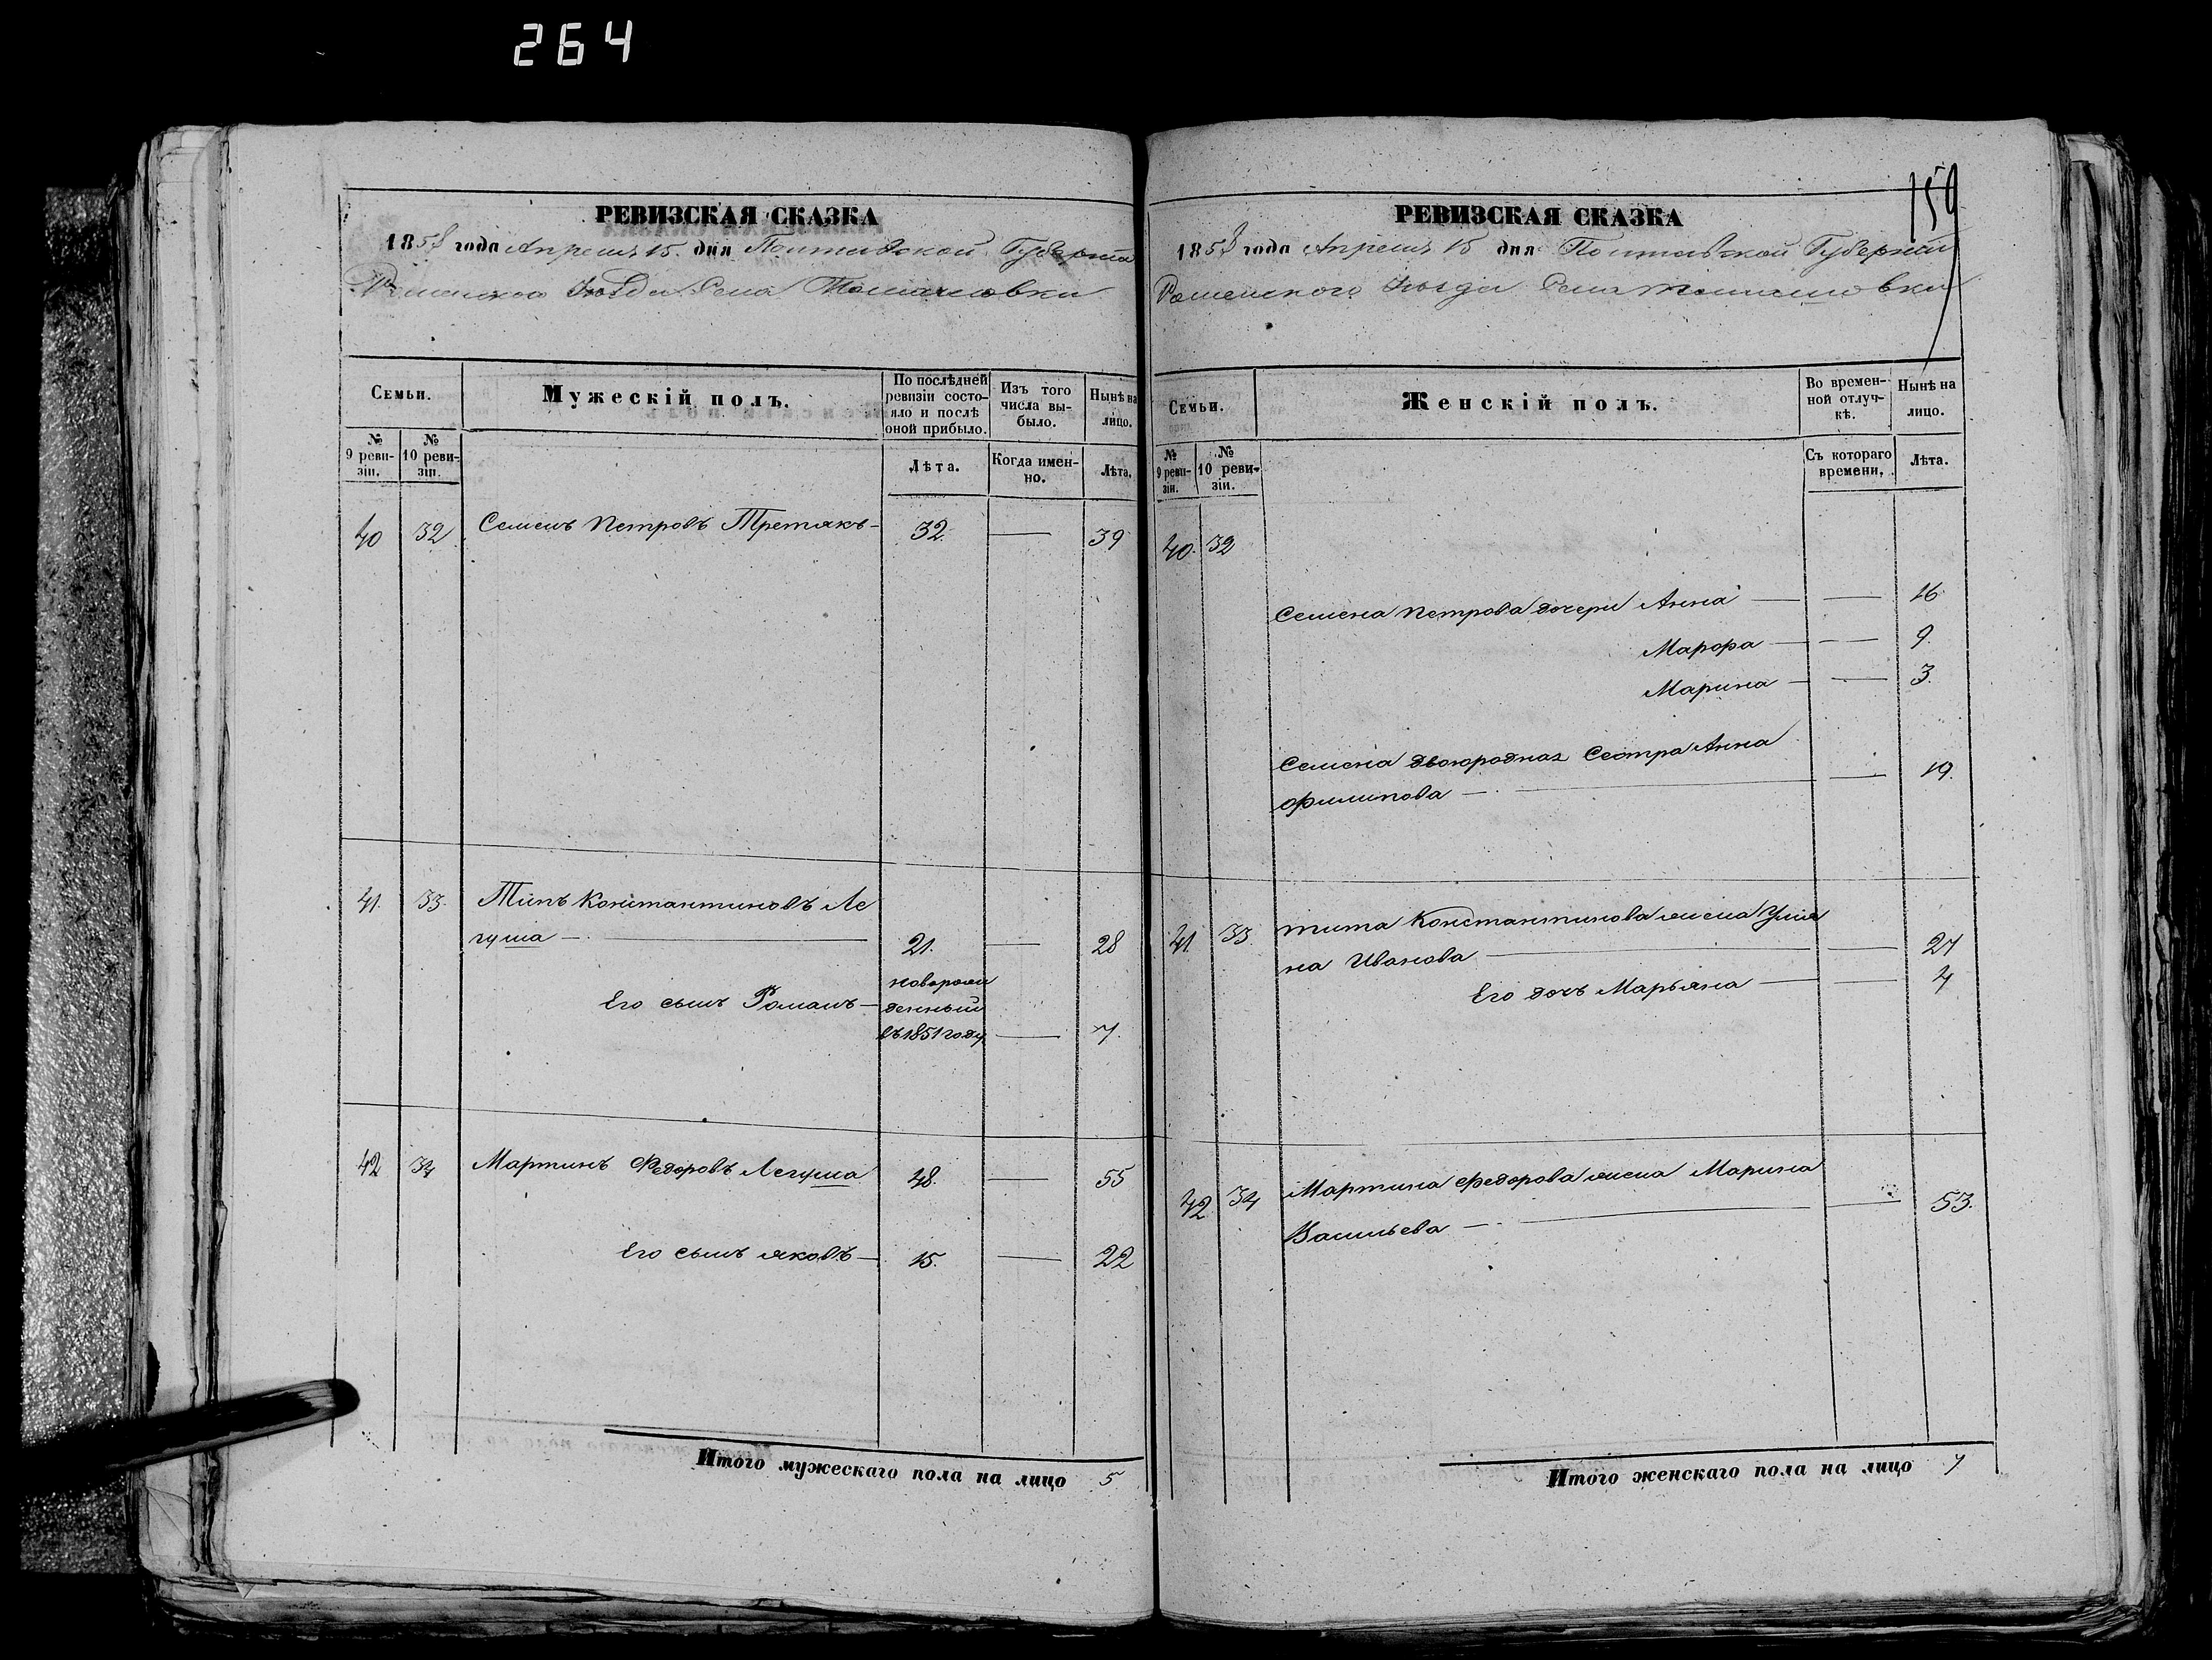 264
159
РЕВИЗСКАЯ СКАЗКА
1858 года Апреля 15 дня Полтавской Губерніи
Роменского Уѣзда Села Томашовки
Семьи.
Мужескій полъ.
По послѣдней ревизіи состояло и послѣ оной прибыло.
Изъ того числа выбыло.
Нынѣ на лицо.
№ 9 ревизіи.
№ 10 ревизіи.
Лѣта.
Когда именно.
Лѣта.
40 32 Семенъ Петровъ Третякъ 32. — 39
41. 33. Титъ Константиновъ Ле
гуша — 21. — 28
Его сынъ Романъ — новорож
денный
въ 1851 году — 7.
42 34 Мартинъ Федоровъ Легуша 48. — 55
Его сынъ Яковъ — 15. — 22
Итого мужескаго пола на лицо 5
РЕВИЗСКАЯ СКАЗКА
1858 года Апреля 15 дня Полтавской Губерніи
Роменского Уѣзда Села Томашовки
Семьи.
Женскій полъ.
Во временной отлучкѣ.
Нынѣ на лицо.
№ 9 ревизіи.
№ 10 ревизіи.
Съ котораго времени.
Лѣта.
40. 32
Семена Петрова дочери Анна — — 16
Марфа — — 9.
Марина — — 3.
Семена двоюродная Сестра Анна
Филипова — — 19.
41 33. Тита Константинова жена Улия
на Иванова — — 27
Его дочь Марьяна — — 4
42 34 Мартина Федорова жена Марина
Васильева — — 53.
Итого женскаго пола на лицо 7